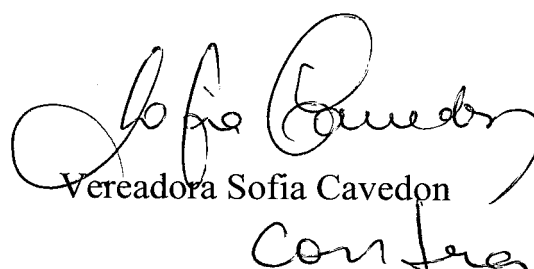 Sofia Cavedon
Vereadora Sofia Cavedon
contra